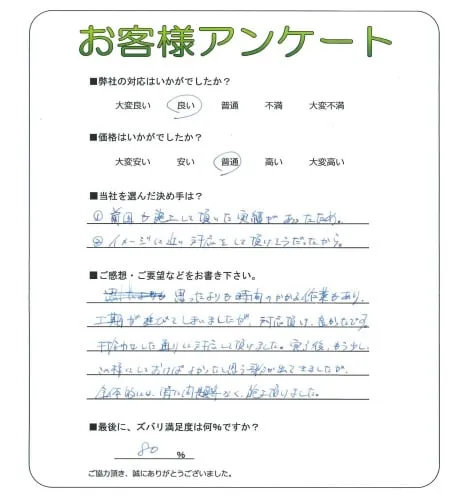 お客様アンケート
■弊社の対応はいかがでしたか?
大変良い 良い 普通 不満 大変不満
■価格はいかがでしたか?
大変安い 安い 普通 高い 大変高い
■当社を選んだ決め手は?
① 前回も施工して頂いた実績があったため。
② イメージに近い対応をして頂けそうだったから。
■ご感想・ご要望などをお書き下さい。
思ったよりも時間のかかる作業もあり、
工期が延びてしまいましたが、対応頂け、良かったです
打合わせした通りに対応して頂けました。完了後、もう少し、
この様にしておけばよかったと思う部分が出てきましたが、
全体的には、特に問題等なく、施工頂けました。
■最後に、ズバリ満足度は何%ですか?
80 %
ご協力頂き、誠にありがとうございました。